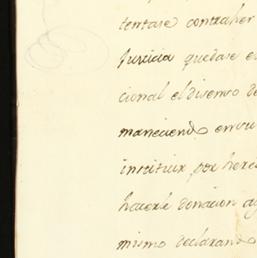 tentase contraher
Justicia quedase e
cional el disenso de
maneciendo en su
instituir por here
hacerle donacion a
mismo declarando